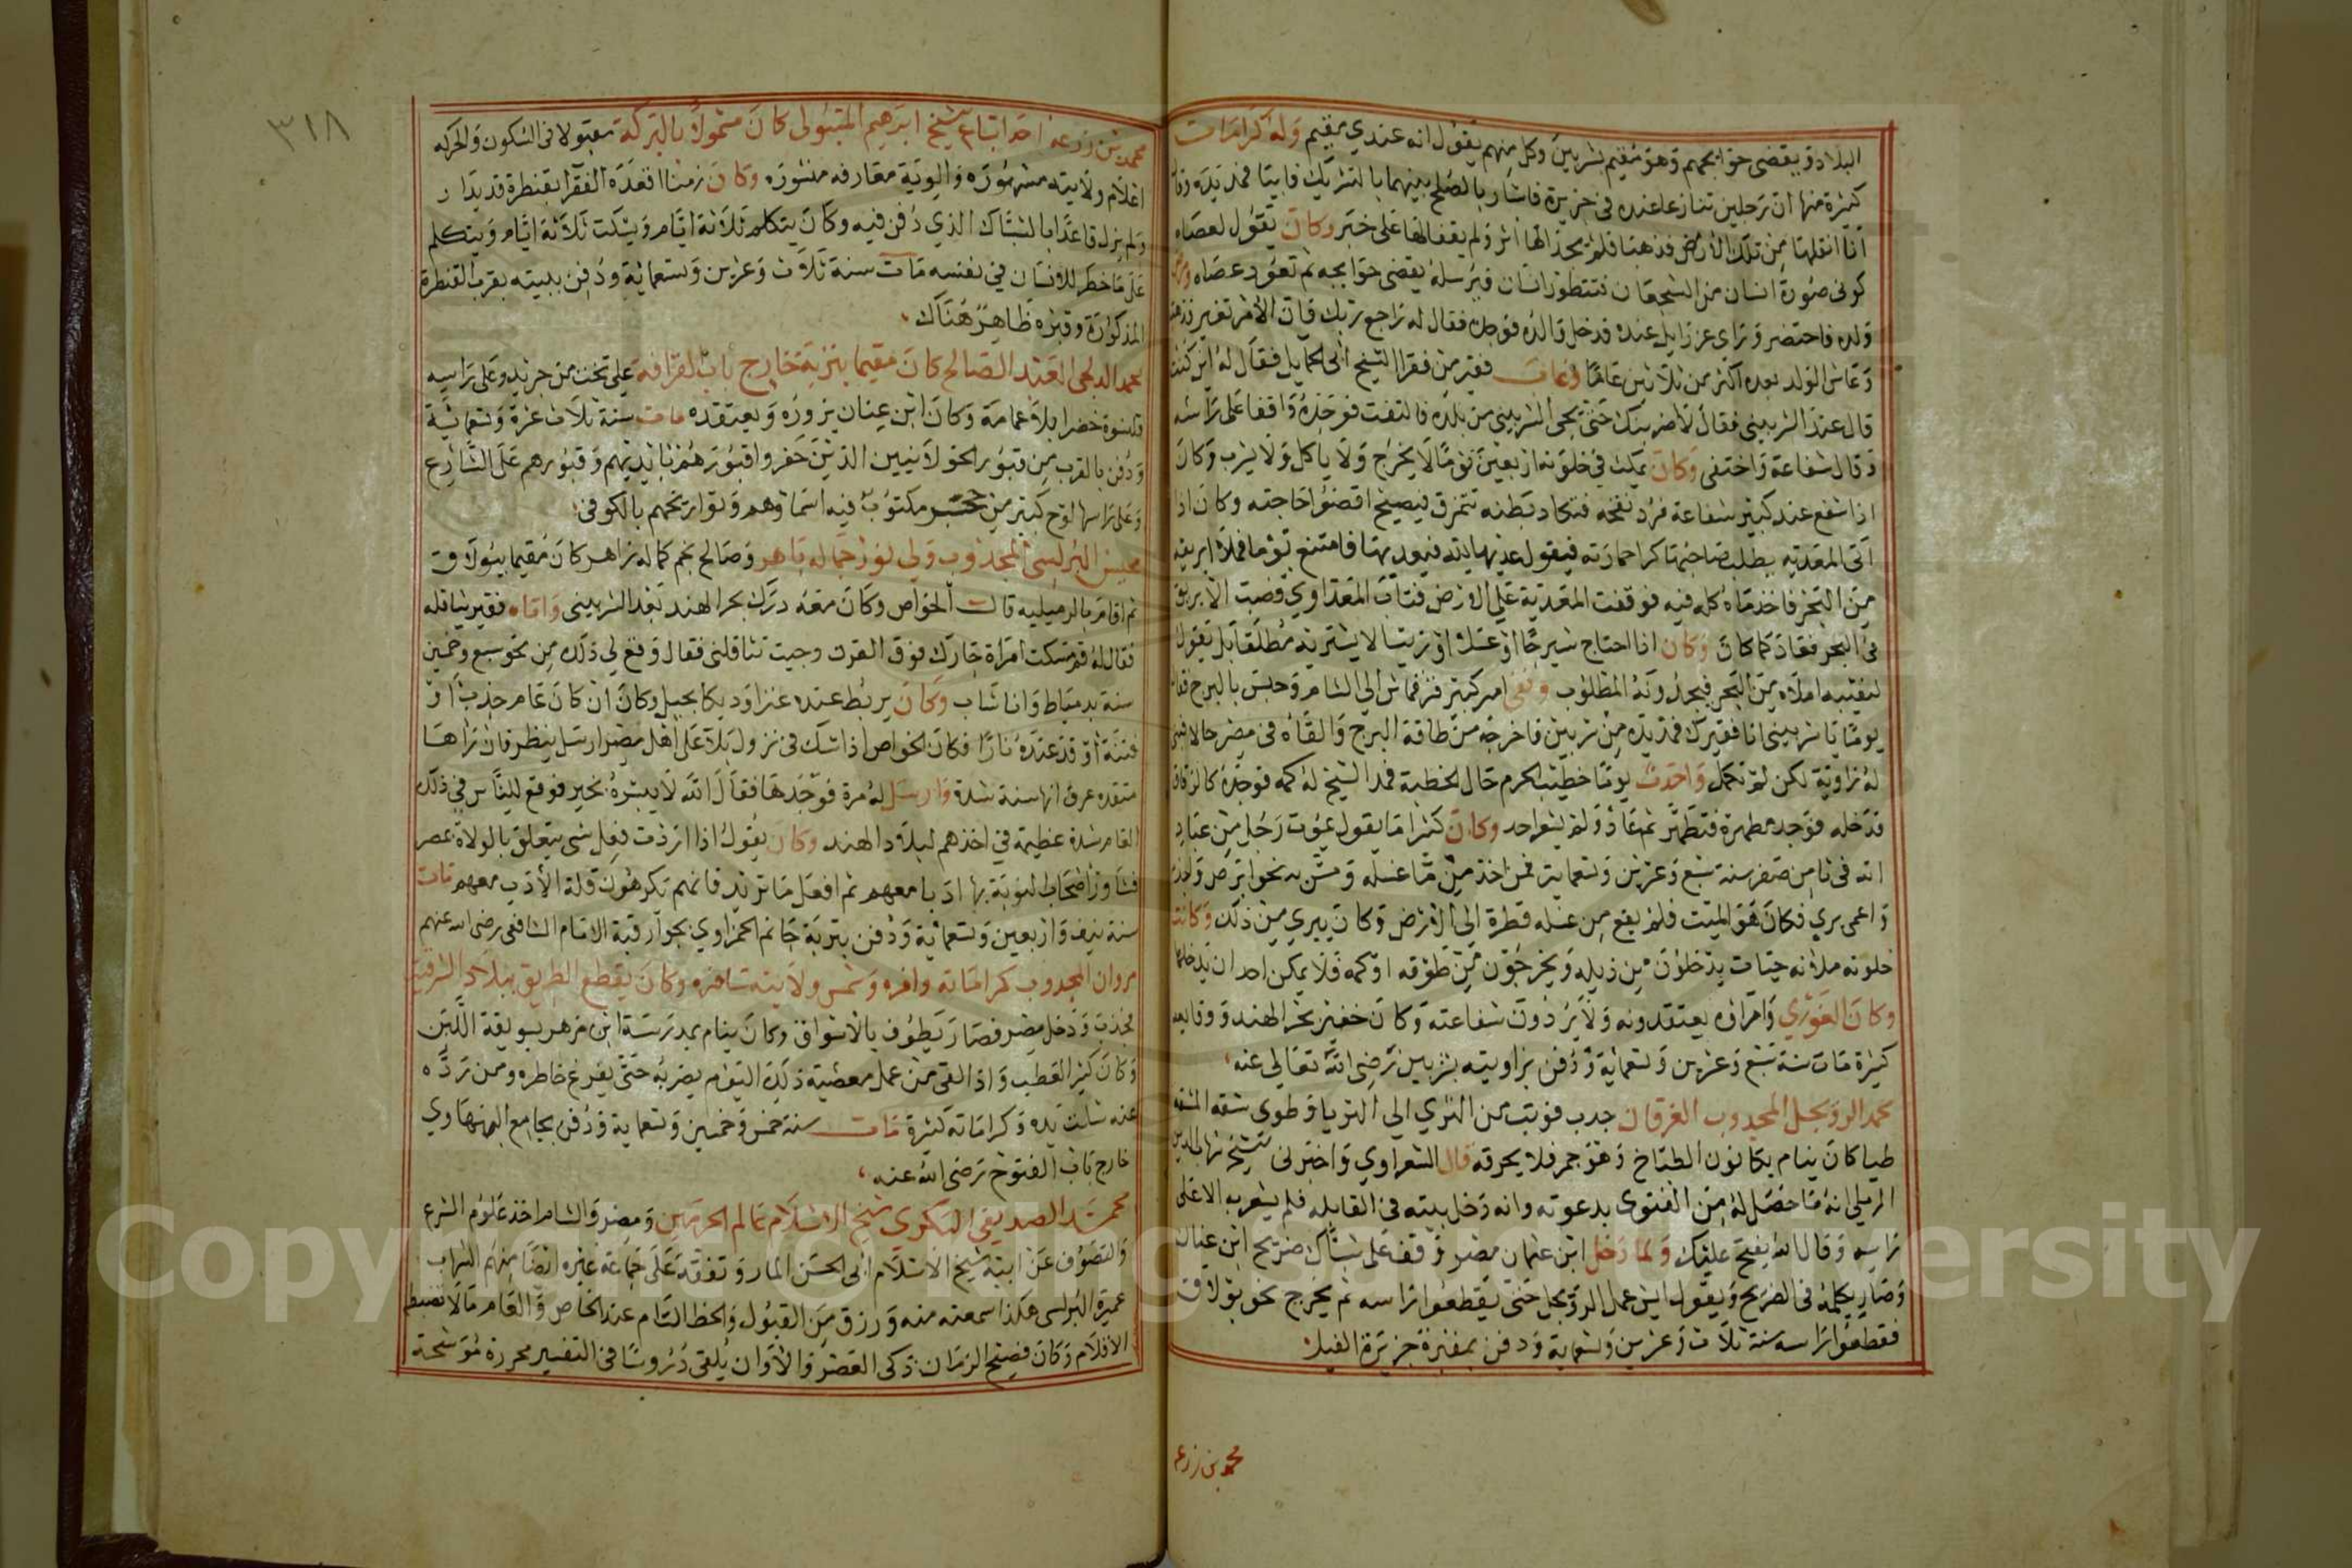 البلاد ويقضي حوائجهم وهو مقيم بشربين وكل منهم يقول انه عندي مقيم وله كرامات
كثيرة منها ان رجلين تنازعا عنده في جزيرة فاشار بالصلح بينهما بالتشريك فابيا فمد يده وقال
انا انقلها من تلك الارض فذهبا فلم يجدا لها اثر ولم يقفا لها على خبر وكان يقول لعصاه
كوني صورة انسان من الشجعان فتتطور انسان فيرسله يقضي حوائجه ثم تعود عصاه
ولده فاحتضر وراى عزرايل عنده فدخل والده فوجده فقال له راجع ربك فان الامر تغير فذهب
وعاش الولد بعده اكثر من ثلاثين عاما وغاب فقير من فقرا الشيخ ابي الحمايل فقال له اين كنت
قال عند الشربيني فقال لاضربنك حتى يجي الشربيني من بلده فالتفت فوجده واقفا على راسه
وقال شفاعة واختفى وكان يمكث في خلوته اربعين يوما لا يخرج ولا ياكل ولا يشرب وكان
اذا شفع عند كبير شفاعة فرد نفخه فتكاد بطنه تتمزق فيصيح اقضوا حاجته وكان اذا
اتى المعدية يطلب صاحبها كرا حمارته فيقول عديها لله فيعديها فامتنع يوما فملا ابريقه
من البحر فاخذ ماه كله فيه فوقفت المعدية على الارض فتاب المعداوي فصب الابريق
في البحر فعاد كما كان وكان اذا احتاج شيرجا او عسلا او زيتا لا يشتريه مطلقا بل يقول
لنقيبه املاه من البحر فيجدونه المطلوب ونفى امير كبير فرفماس الى الشام وحبس بالبرج فقال
يوما يا شربيني انا فقيرك فمد يده من شربين فاخرجه من طاقة البرج والقاه في مصر حالا فبنى
له زاوية لكن لم تكمل واحدث يوما خطيب الحرم حال الخطبة فمد الشيخ له كمه فوجده كالزقاق
فدخله فوجد مطهرة فتطهر ثم عاد ولم يشعر احد وكان كثيرا ما يقول يموت رجل من عباد
الله في ثامن صفر سنة سبع وعشرين وتسعماية فمن اخذ من ما غسله ومس به نحو ابرص واجذم
واعمى بري فكان هو الميت فلم يقع من غسله قطرة الى الارض وكان يبري من ذلك وكانت
خلوته ملانه حيات يدخلون من ذيله ويخرجون من طوقه او كمه فلا يمكن احد ان يدخلها
وكان الغوري وامراؤه يعتقدونه ولا يردون شفاعته وكان خفير بحر الهند ووقايعه
كثيرة مات سنة سبع وعشرين وتسعماية ودفن بزاويته بشربين رضي الله تعالى عنه
محمد الرويجل المجدوب الغرقان جدب فوثب من الثري الى الثريا وطوى شقة المشقة
طيا كان ينام بكانون الطباخ وهو جمر فلا يحرقه قال الشعراوي واخبرني شيخ شهاب الدين
الرملي انه ما حصل له من الفتوى بدعوته وانه دخل بيته في القايله فلم يشعر به الا على
راسه وقال الله يفتح عليك ولما دخل ابن عثمان مصر وقف على شباك ضريح ابن عنان
وصار يكلمه في الضريح ويقول ايش عمل الرويجل حتى يقطعوا راسه ثم يخرج نحو بولاق
فقطعوا راسه سنة ثلاث وعشرين وتسعماية ودفن بمقبرة جزيرة الفيل
محمد بن زرعه
٣١٨
محمد بن زرعه احد اتباع الشيخ ابرهيم المتبولي كان مشمولا بالبركة مقبولا في السكون والحركه
اعلام ولايته مشهوره والوية معارفه منشوره وكان زمنا اقعده الفقرا بقنطرة قديدار
ولم يزل قاعدا بالشباك الذي دفن فيه وكان يتكلم ثلاثة ايام ويسكت ثلاثة ايام ويتكلم
على ما خطر للانسان في نفسه مات سنة ثلاث وعشرين وتسعمائة ودفن ببيته بقرب القنطرة
المذكورة وقبره ظاهر هناك
محمد الدلجى العبد الصالح كان مقيما بتربة خارج باب القرافه على تخت من جريد وعلى راسه
قلنسوة خضرا بلا عمامة وكان ابن عنان يزوره ويعتقده مات سنة ثلاث عشرة وتسعمائة
ودفن بالقرب من قبور الخولانيين الذين حفروا قبورهم بايديهم وقبورهم على الشارع
وعلى راسها لوح كبير من خشب مكتوب فيه اسماوهم وتواريخهم بالكوفي
محيسن البرلسي المجذوب ولي نور جماله باهر وصالح نجم كماله زاهر كان مقيما ببولاق
ثم اقام بالرميليه قال الخواص وكان معه درك بحر الهند بعد الشربيني واتاه فقير يثاقله
فقال له قم مسكت امراة جارك فوق الفرن وجيت تثاقلني فقال وقع لي ذلك من نحو سبع وخمسين
سنة بدمياط وانا شاب وكان يربط عنده عنزا وديكا بحبل وكان ان كان عام جذب او
فتنة اوقد عنده نارا فكان الخواص اذا شك في نزول بلا على اهل مصر ارسل ينظر فان راها
متقده عرف انها سنة شدة وارسل له مرة فوجدها فقال الله لا يبشره بخير فوقع للناس في ذلك
العام شدة عظيمة في اخذهم لبلاد الهند وكان يقول اذا اردت فعل شي يتعلق بالولاة بمصر
فشاور اصحاب النوبة بها ادبا معهم ثم افعل ما تريد فانهم يكرهون قلة الادب معهم مات
سنة نيف واربعين وتسعمائة ودفن بتربة جانم الحمزاوي بجوار قبة الامام الشافعي رضي الله عنهم
مروان المجدوب كراماته وافره وشمس ولايته سافره وكان يقطع الطريق ببلاد الشرقية
فجذب ودخل مصر فصار يطوف بالاسواق وكان ينام بمدرسة ابن مزهر بسويقة اللبن
وكان كثير العطب واذا لقى من عمل معصية ذلك اليوم يضربه حتى يفرغ خاطره ومن رده
عنه شلت يده وكراماته كثيرة مات سنة خمس وخمسين وتسعماية ودفن بجامع البنهاوي
خارج باب الفتوح رضي الله عنه
محمد الصديقي البكري شيخ الاسلام عالم الحرمين ومصر والشام اخذ علوم الشرع
والتصوف عن ابيه شيخ الاسلام ابي الحسن المار وتفقه على جماعة غيره ايضا منهم الشهاب
عميرة البرلسي هكذا سمعته منه ورزق من القبول والحظ التام عند الخاص والعام ما لا تضبطه
الاقلام وكان فصيح الزمان ذكى العصر والاوان يلقى دروسا في التفسير محررة موشحة
Copyright © King Saud University